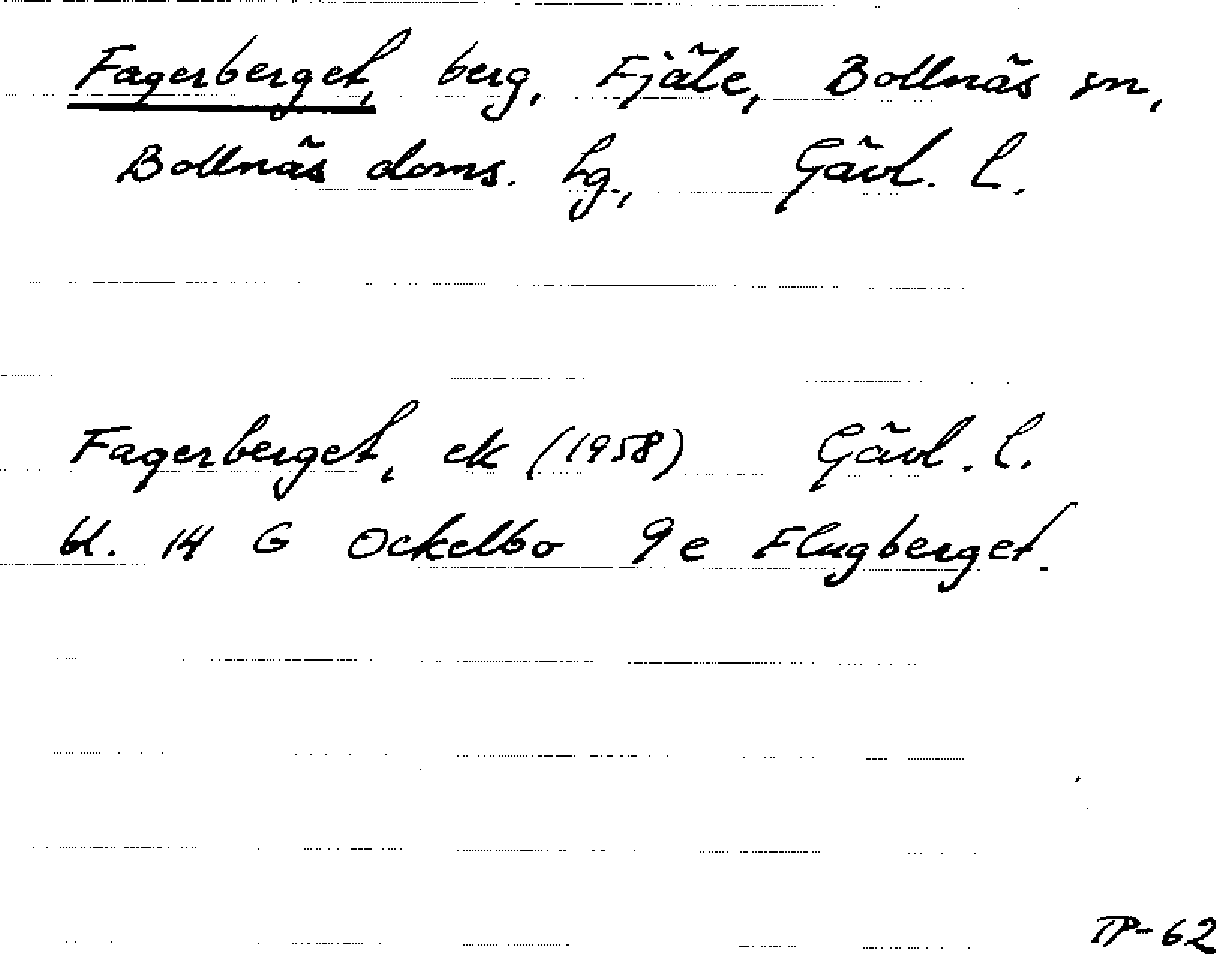 Fagerberget, berg, Fjäle, Bollnäs sn,
Bollnäs doms. hg., Gävl. l.
Fagerberget, ek (1958) Gävl. l.
bl. 14 G Ockelbo 9e Flugberget.
TP-62